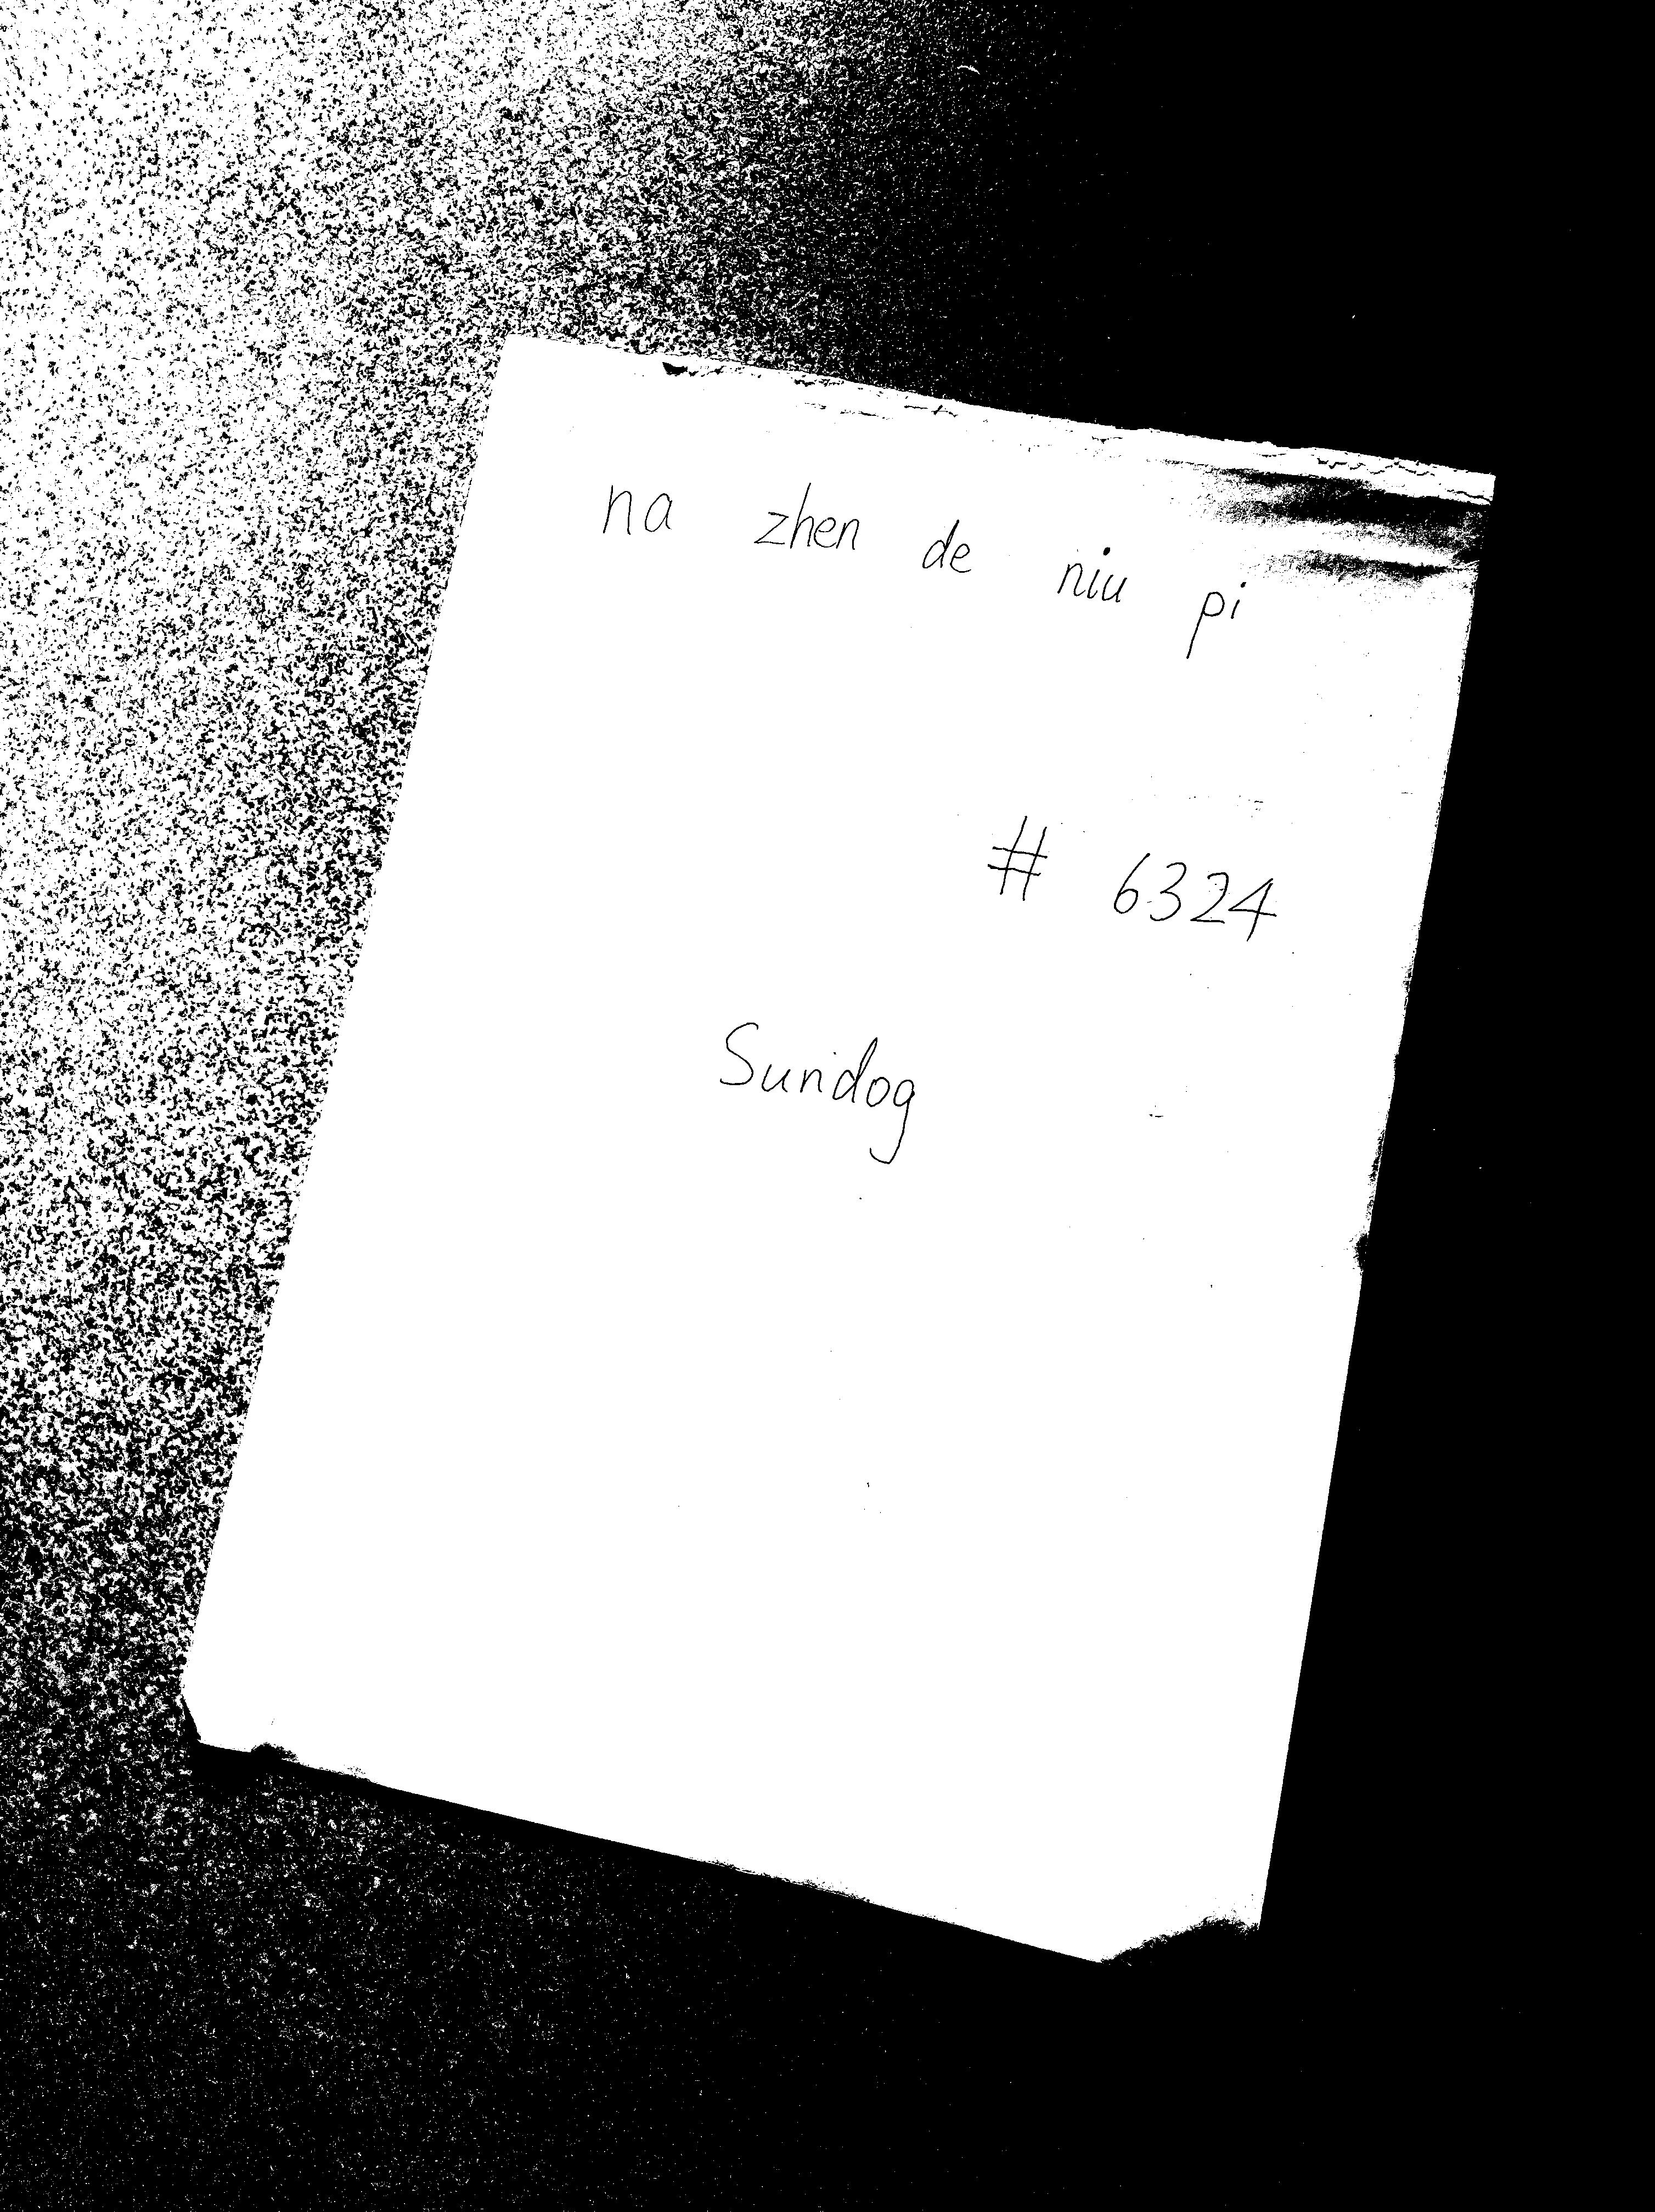 na zhen de niu pi
# 6324
Sundog